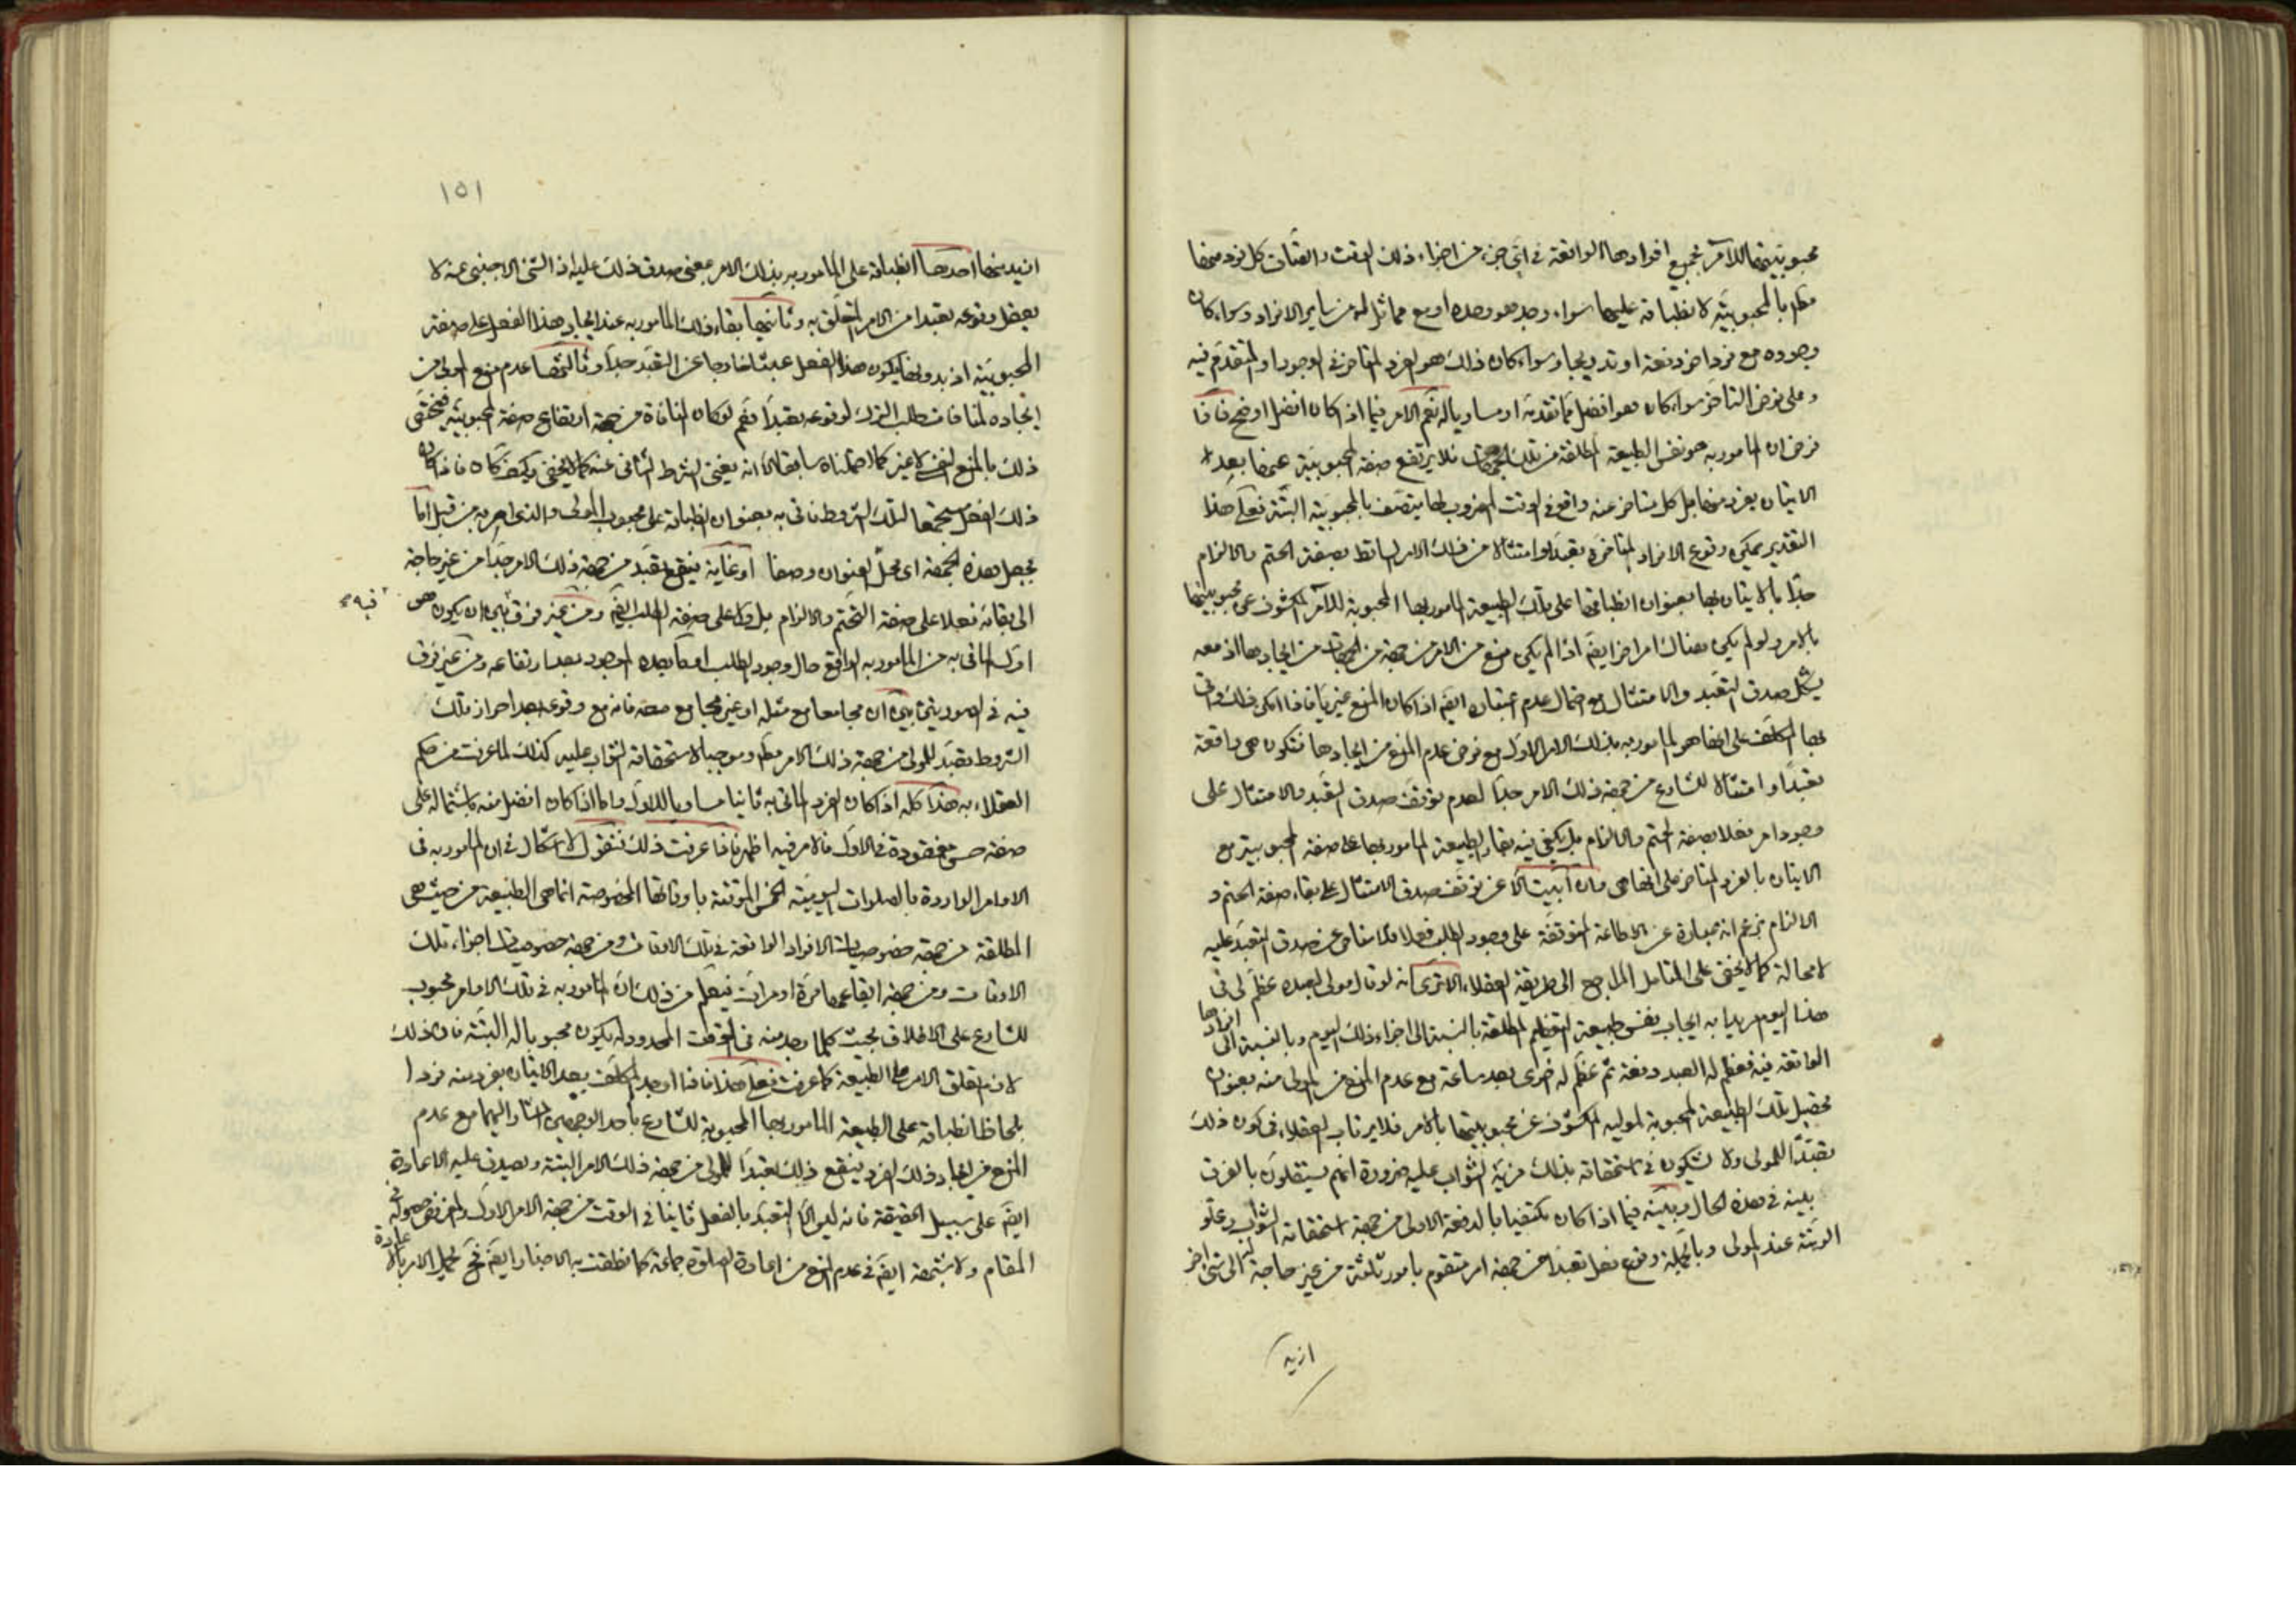 محبوبيتها للآمر بجميع افرادها الواقعة في اي جزء من اجزاء ذلك الوقت واتصاف كل فرد منها
مطلم بالمحبوبية لانطباقه عليها سواء وجد هو وحده او مع مماثل له من ساير الافراد وسواء كان
وجوده مع فرد اخر دفعة او تدريجا وسواء كان ذلك هو الفرد المتاخر في الوجود او المتقدم فيه
وعلى فرض التاخر سواء كان هو افضل مما تقدمه او مساويا له نعم الامر فيما اذا كان افضل اوضح فاذا
فرض ان المامور به هو نفس الطبيعة المطلقة من تلك الجهات فلا يرتفع صفة المحبوبية عنها بعد
الاتيان بفرد منها بل كل متاخر عنه واقع في الوقت المضروب لها يتصف بالمحبوبية البتة فعلى هذا
التقدير يمكن وقوع الافراد المتاخرة تعبدا وامتثالا من ذلك الامر الساقط بصفة الحتم والالزام
جدا بالاتيان بها بعنوان انطباقها على تلك الطبيعة المامور بها المحبوبة للآمر المكشوف عن محبوبيتها
بالامر ولو لم يكن هناك امر اخر ايضا اذا لم يكن منع من الامر من جهة من الجهات من ايجادها اذ معه
يشكل صدق التعبد والامتثال مع احتمال عدم ايضا اذا كان المنع غيريا فاذا امكن ذلك واتى
بها المكلف على انها هو المامور به بذلك الامر الاول مع فرض عدم المنع من ايجادها فتكون هي واقعة
تعبدا وامتثالا للشارع من جهة ذلك الامر جدا لعدم توقف صدق التعبد والامتثال على
وجود امر فعلا بصفة الحتم والالزام بل يكفي فيه بقاء الطبيعة المامور بها على صفة المحبوبية مع
الاتيان بالفرد المتاخر على انها هي وان ابيت الا عن توقف صدق الامتثال على بقاء صفة الحتم و
الالزام بزعم انه عبارة عن الاطاعة المتوقفة على وجود الطلب فعلا فلا مناص عن صدق التعبد عليه
لا محالة كما لا يخفى على المتامل المراجع الى طريقة العقلاء الا ترى انه لو قال مولى لعبده عظم لي في
هذا اليوم مريدا به ايجاب نفس طبيعة التعظيم المطلقة بالنسبة الى اجزاء ذلك اليوم وبالنسبة الى افرادها
الواقعة فيه فعظم له العبد دفعة ثم عظم له اخرى بعد ساعة مع عدم المنع من المولى منه بعنوان
تحصيل تلك الطبيعة المحبوبة لموليه المكشوف عن محبوبيتها بالامر فلا يرتاب العقلاء في كون ذلك
تعبدا للمولى ولا يشكون في استحقاقه بذلك مزية الثواب عليه ضرورة انهم يستقلون بالفرق
بينه في هذه الحال وبينه فيما اذا كان مكتفيا بالدفعة الاولى من جهة استحقاقه الثواب وعلو
الرتبة عند المولى وبالجملة وقوع فعل تعبدا من جهة امر متقوم بامور ثلثة من غير حاجة الى شئ اخر
ازيد
١٥١
ازيد منها احدها انطباقه على المامور به بذلك الامر بمعنى صدق ذلك عليه اذ الشئ الاجنبي عنه لا
يعقل وقوعه تعبدا من الامر المتعلق به وثانيها بقاء ذلك المامور به عند ايجاد هذا الفعل على صفة
المحبوبية اذ بدونها يكون هذا الفعل عبثا خارجا عن التعبد جدا وثالثها عدم منع المولى من
ايجاده لمنافات طلب الترك لوقوعه تعبدا نعم لو كان المنافاة من جهة ارتفاع صفة المحبوبية فيختص
ذلك بالمنع النفسي لا غير كما احتملناه سابقا الا انه يغني الشرط الثاني عنه كما لا يخفى وكيف كان فاذا كان
ذلك الفعل مستجمعا لتلك الشروط فاتى به بعنوان انطباقه على محبوب المولى والذي امر به من قبل اما
بجعل هذه الجهة اي محل العنوان وصفا او غاية فيقع تعبدا من جهة ذلك الامر جدا من غير حاجة
الى بقائه فعلا على صفة التحتم والالزام بل ولا على صفة الطلب ايضا ومن غير فرق بين ان يكون هو فيه
اول الماتى به من المامور به الواقع حال وجود الطلب او ما بعده الموجود بعد ارتفاعه ومن غير فرق
فيه في الصورتين بين ان مجامعا مع مثله او غير مجامع معه فانه مع وقوعه بعد احراز تلك
الشروط تعبد للمولى من جهة ذلك الامر مطلقا وموجبا لاستحقاقه الثواب عليه كذلك لما عرفت من حكم
العقلاء به هذا كله اذا كان الفرد الماتى به ثانيا مساويا للاول واما اذا كان افضل منه باشتماله على
صفة حسن مفقودة في الاول فالامر فيه اظهر فاذا عرفت ذلك فنقول لا اشكال في ان المامور به في
الاوامر الواردة بالصلوات اليومية الخمس الموقتة باوقاتها المخصوصة انما هي الطبيعة من حيث هي
المطلقة من جهة خصوصيات الافراد الواقعة في تلك الاوقات ومن جهة خصوصيات اجزاء تلك
الاوقات ومن جهة ايقاعها مرة او مرات فيعلم من ذلك ان المامور به في تلك الاوامر محبوب
للشارع على الاطلاق بحيث كلما وجد منه في الوقت المحدود له يكون محبوبا له البتة فان ذلك
لازم تعلق الامر على الطبيعة كما عرفت فعلى هذا فاذا اوجد المكلف بعد الاتيان بفرد منه فردا
بلحاظ انطباقه على الطبيعة المامور بها المحبوبة للشارع باحد الوجهين المشار اليهما مع عدم
المنع من ايجاد ذلك الفرد فيقع ذلك تعبدا للمولى من جهة ذلك الامر البتة ويصدق عليه الاعادة
ايضا على سبيل الحقيقة فانه ليس الا التعبد بالفعل ثانيا في الوقت من جهة الامر الاول والمفروض حصوله في
المقام ولا شبهة ايضا في عدم المنع من اعادة الصلوة جماعة كما نطقت به الاخبار ايضا فح يحمل الامر بالاعادة